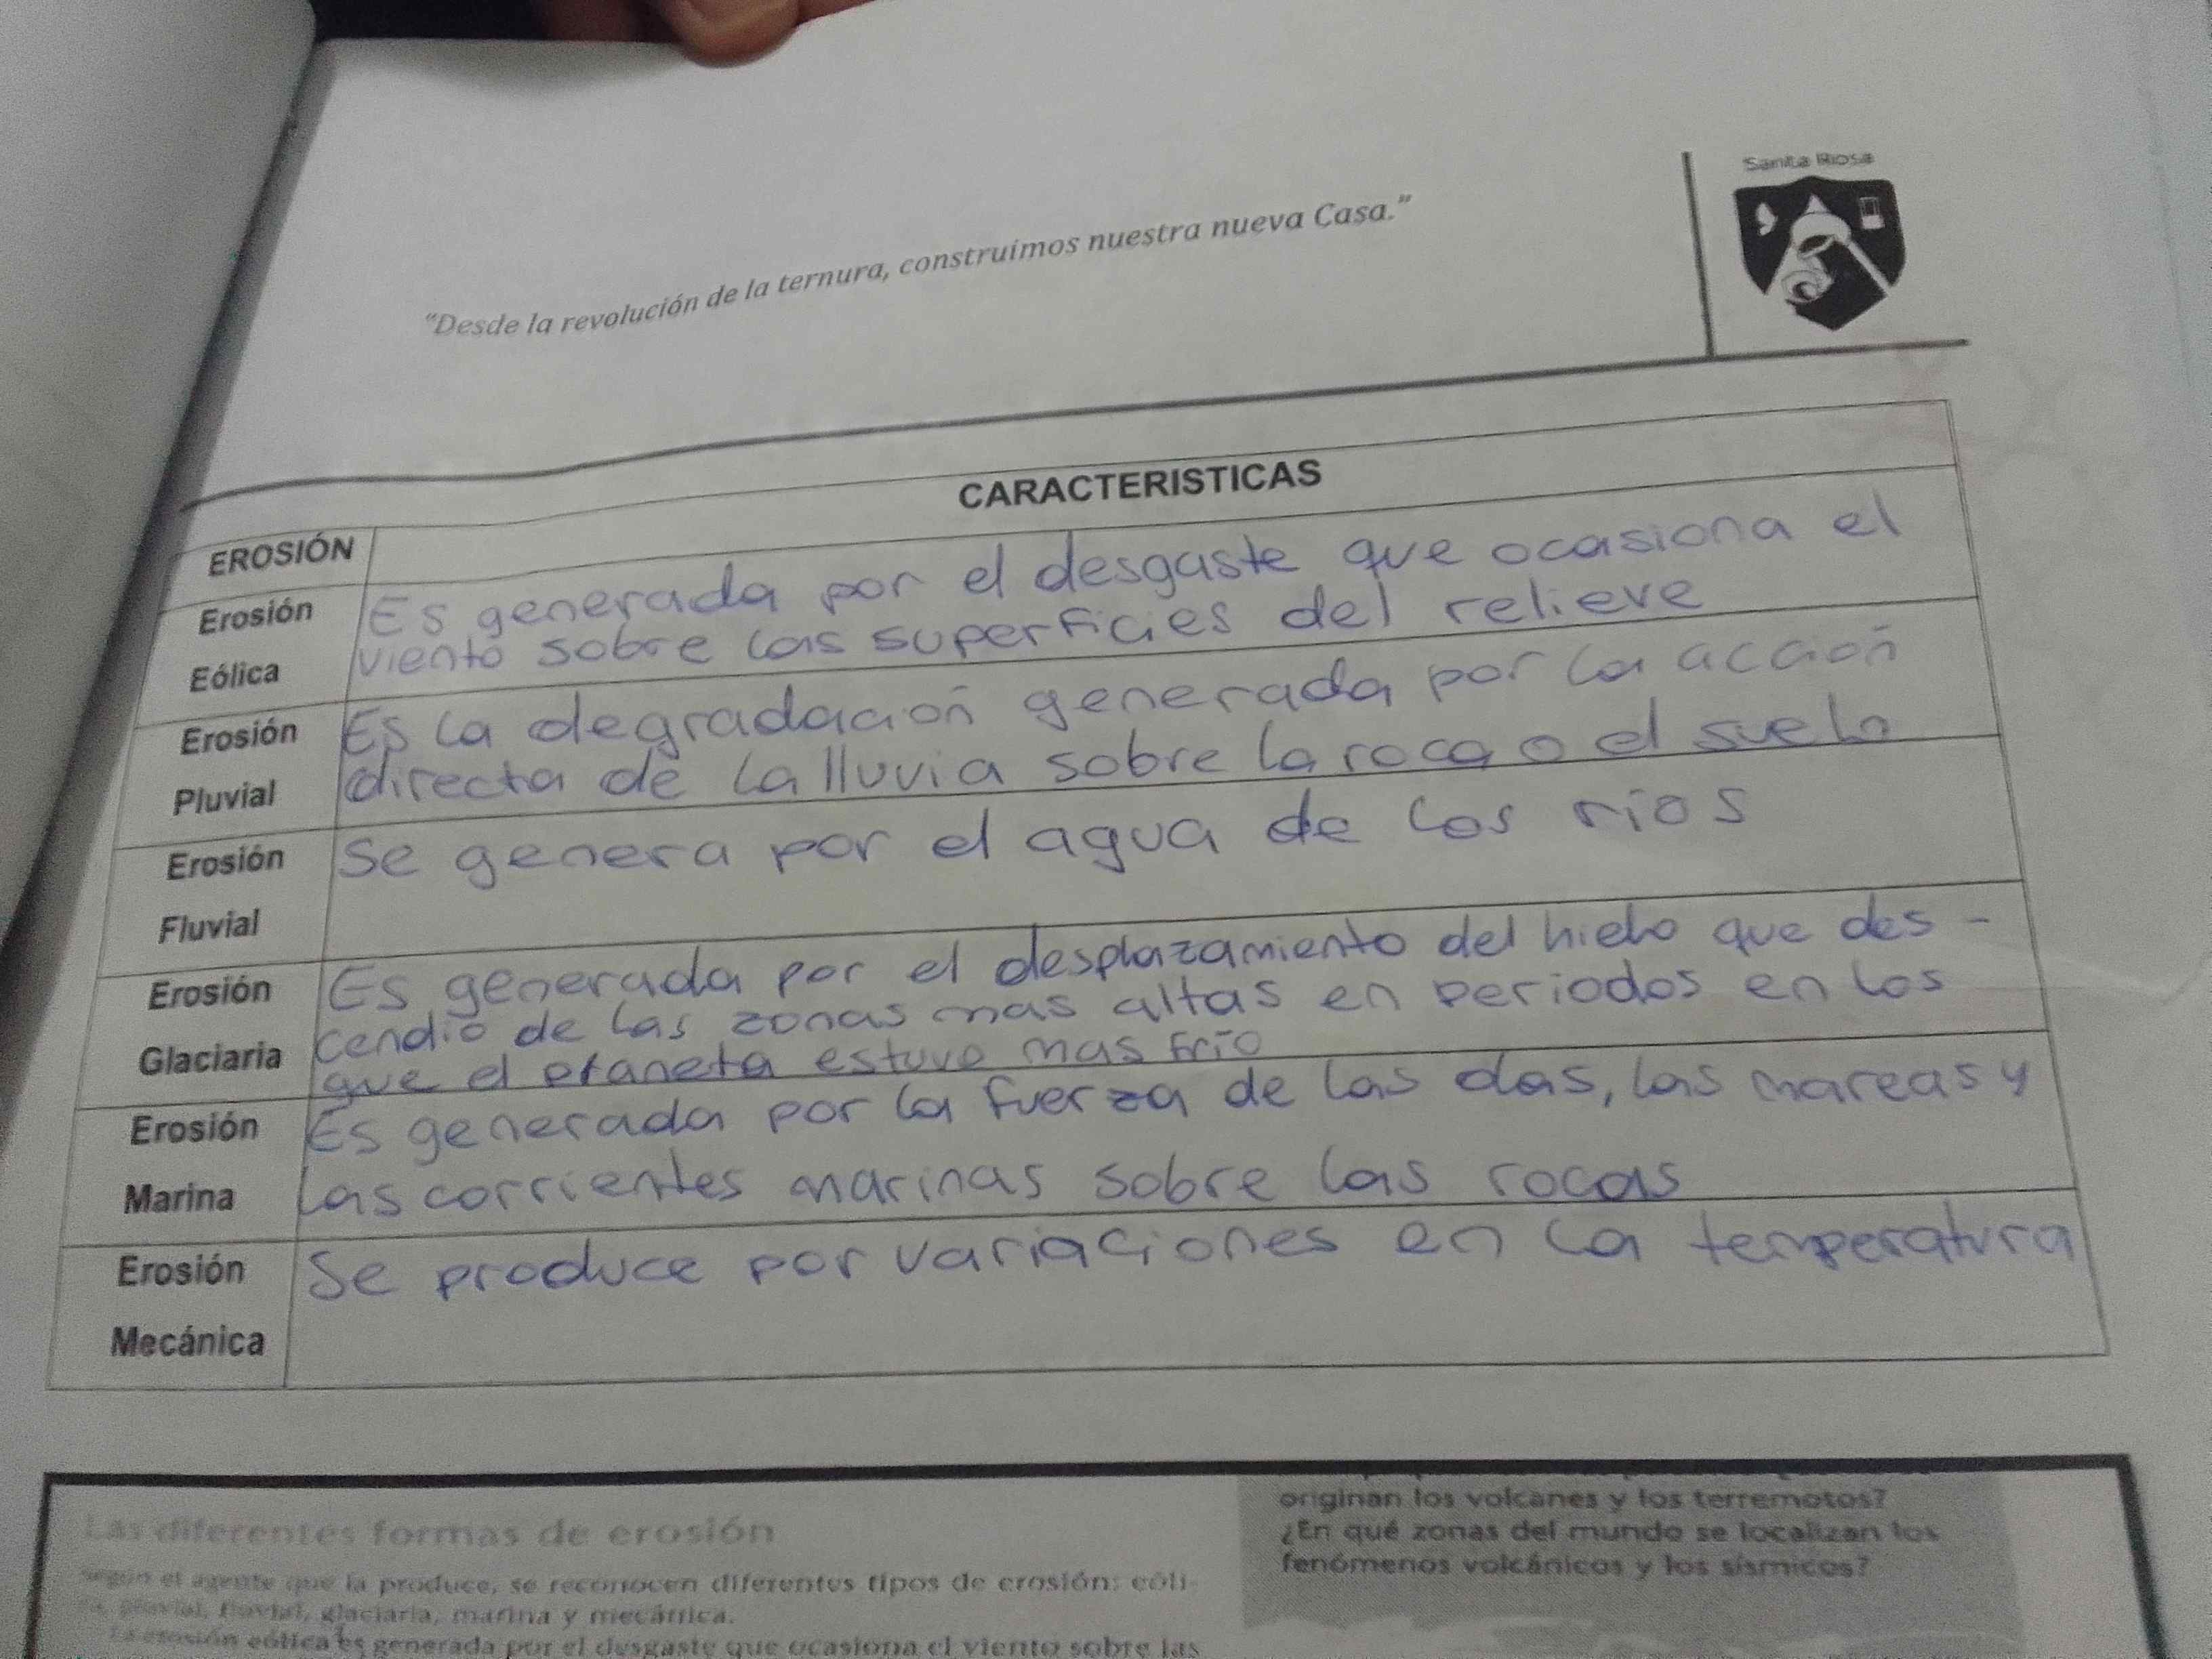 Santa Rosa
"Desde la revolución de la ternura, construímos nuestra nueva Casa."
EROSIÓN
CARACTERISTICAS
Erosión
Eólica
Es generada por el desgaste que ocasiona el
viento sobre las superficies del relieve
Erosión
Pluvial
Es la degradación generada por la acción
directa de la lluvia sobre la roca o el suelo
Erosión
Fluvial
Se genera por el agua de los ríos
Erosión
Glaciaria
Es generada por el desplazamiento del hielo que des-
cendio de las zonas mas altas en periodos en los
que el planeta estuvo mas frío
Erosión
Marina
Es generada por la fuerza de las olas, las mareas y
las corrientes marinas sobre las rocas
Erosión
Mecánica
Se produce por variaciones en la temperatura
Las diferentes formas de erosión
Según el agente que la produce, se reconocen diferentes tipos de erosión: eóli-
pluvial, fluvial, glaciaria, marina y mecánica.
La erosión eólica es generada por el desgaste que ocasiona el viento sobre las
originan los volcanes y los terremotos?
¿En qué zonas del mundo se localizan los
fenómenos volcánicos y los sísmicos?